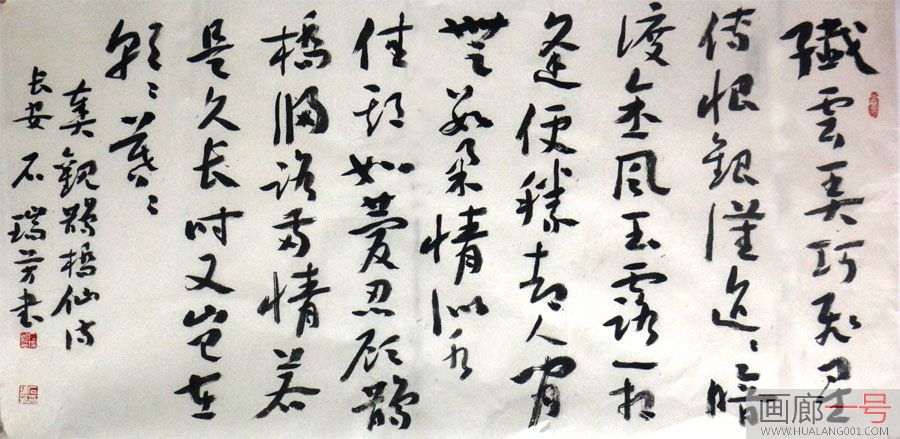 纖雲弄巧飛星
傳恨銀漢迢〻暗
渡金風玉露一相
逢便勝却人间
無数柔情似水
佳期如夢忍顾鵲
橋歸路兩情若
是久长时又岂在
朝〻暮〻
秦觀鵲橋仙詩
长安 石瑞芳书
画廊一号
WWW.HUALANG001.COM